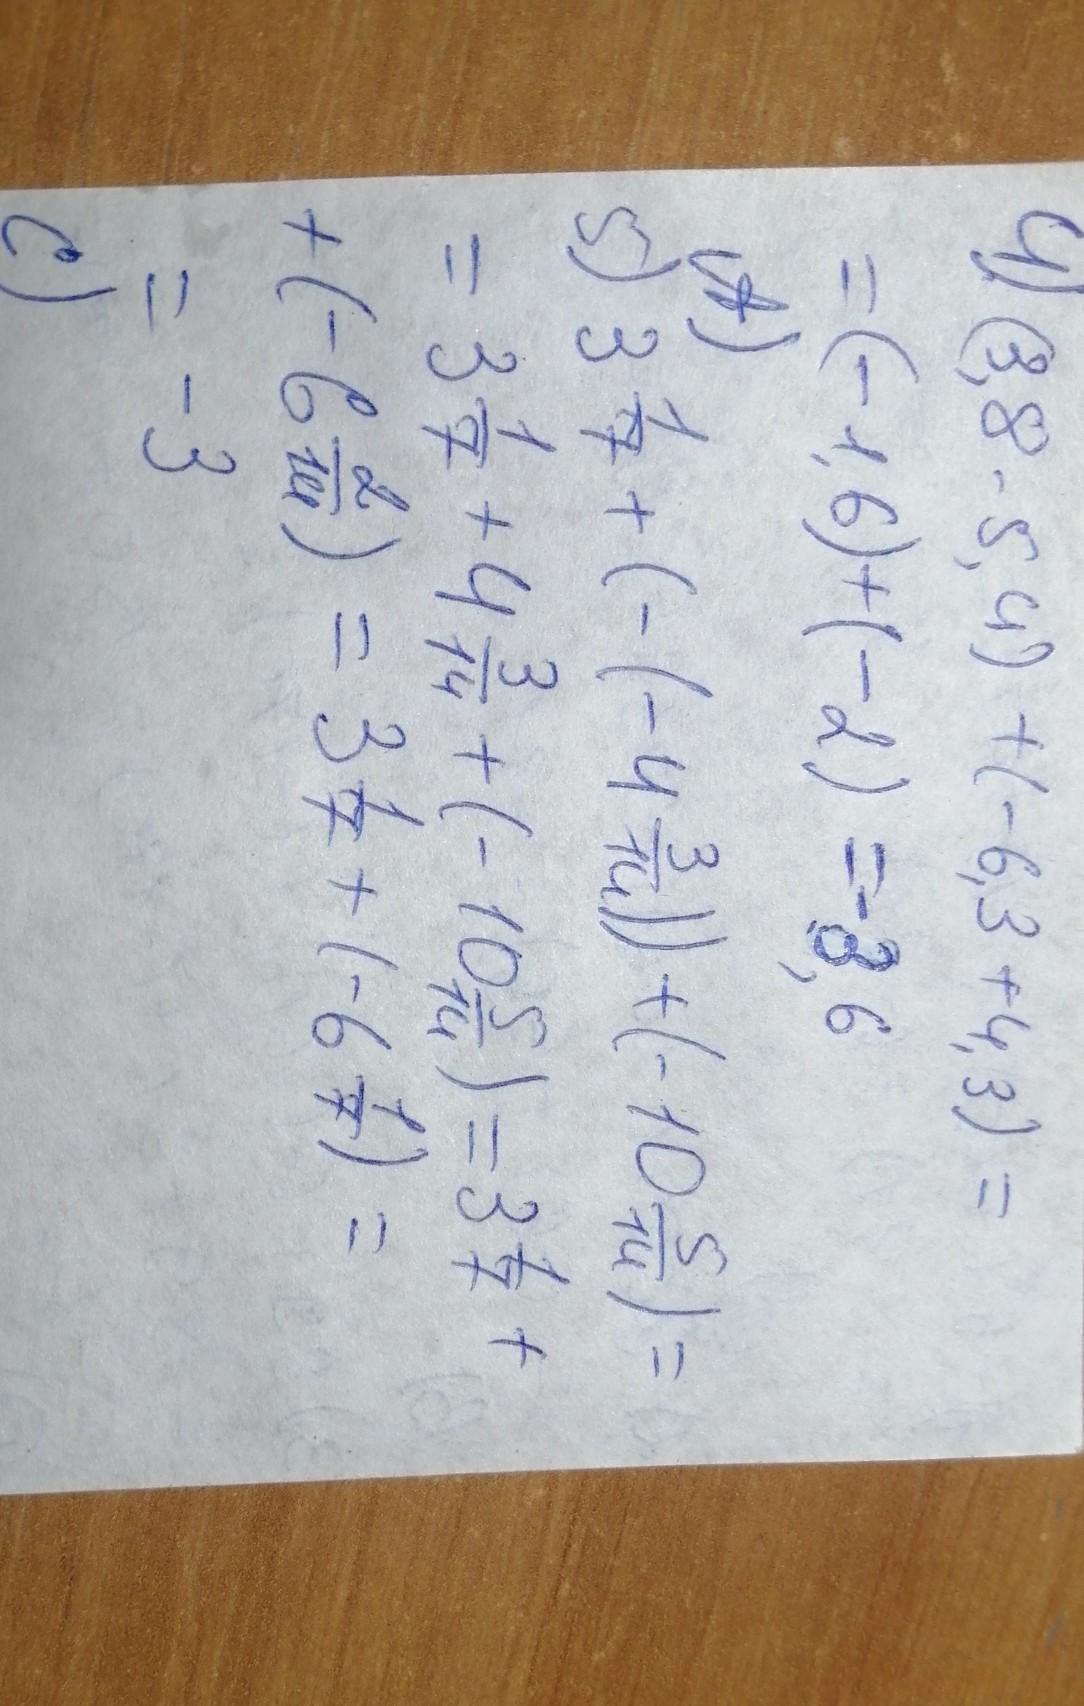 4) (3,8 - 5,4) + (-6,3 + 4,3) =
= (-1,6) + (-2) = -3,6
5) 3 1/7 + (-(-4 3/14)) + (-10 5/14) =
= 3 1/7 + 4 3/14 + (-10 5/14) = 3 1/7 +
+ (-6 2/14) = 3 1/7 + (-6 1/7) =
= -3